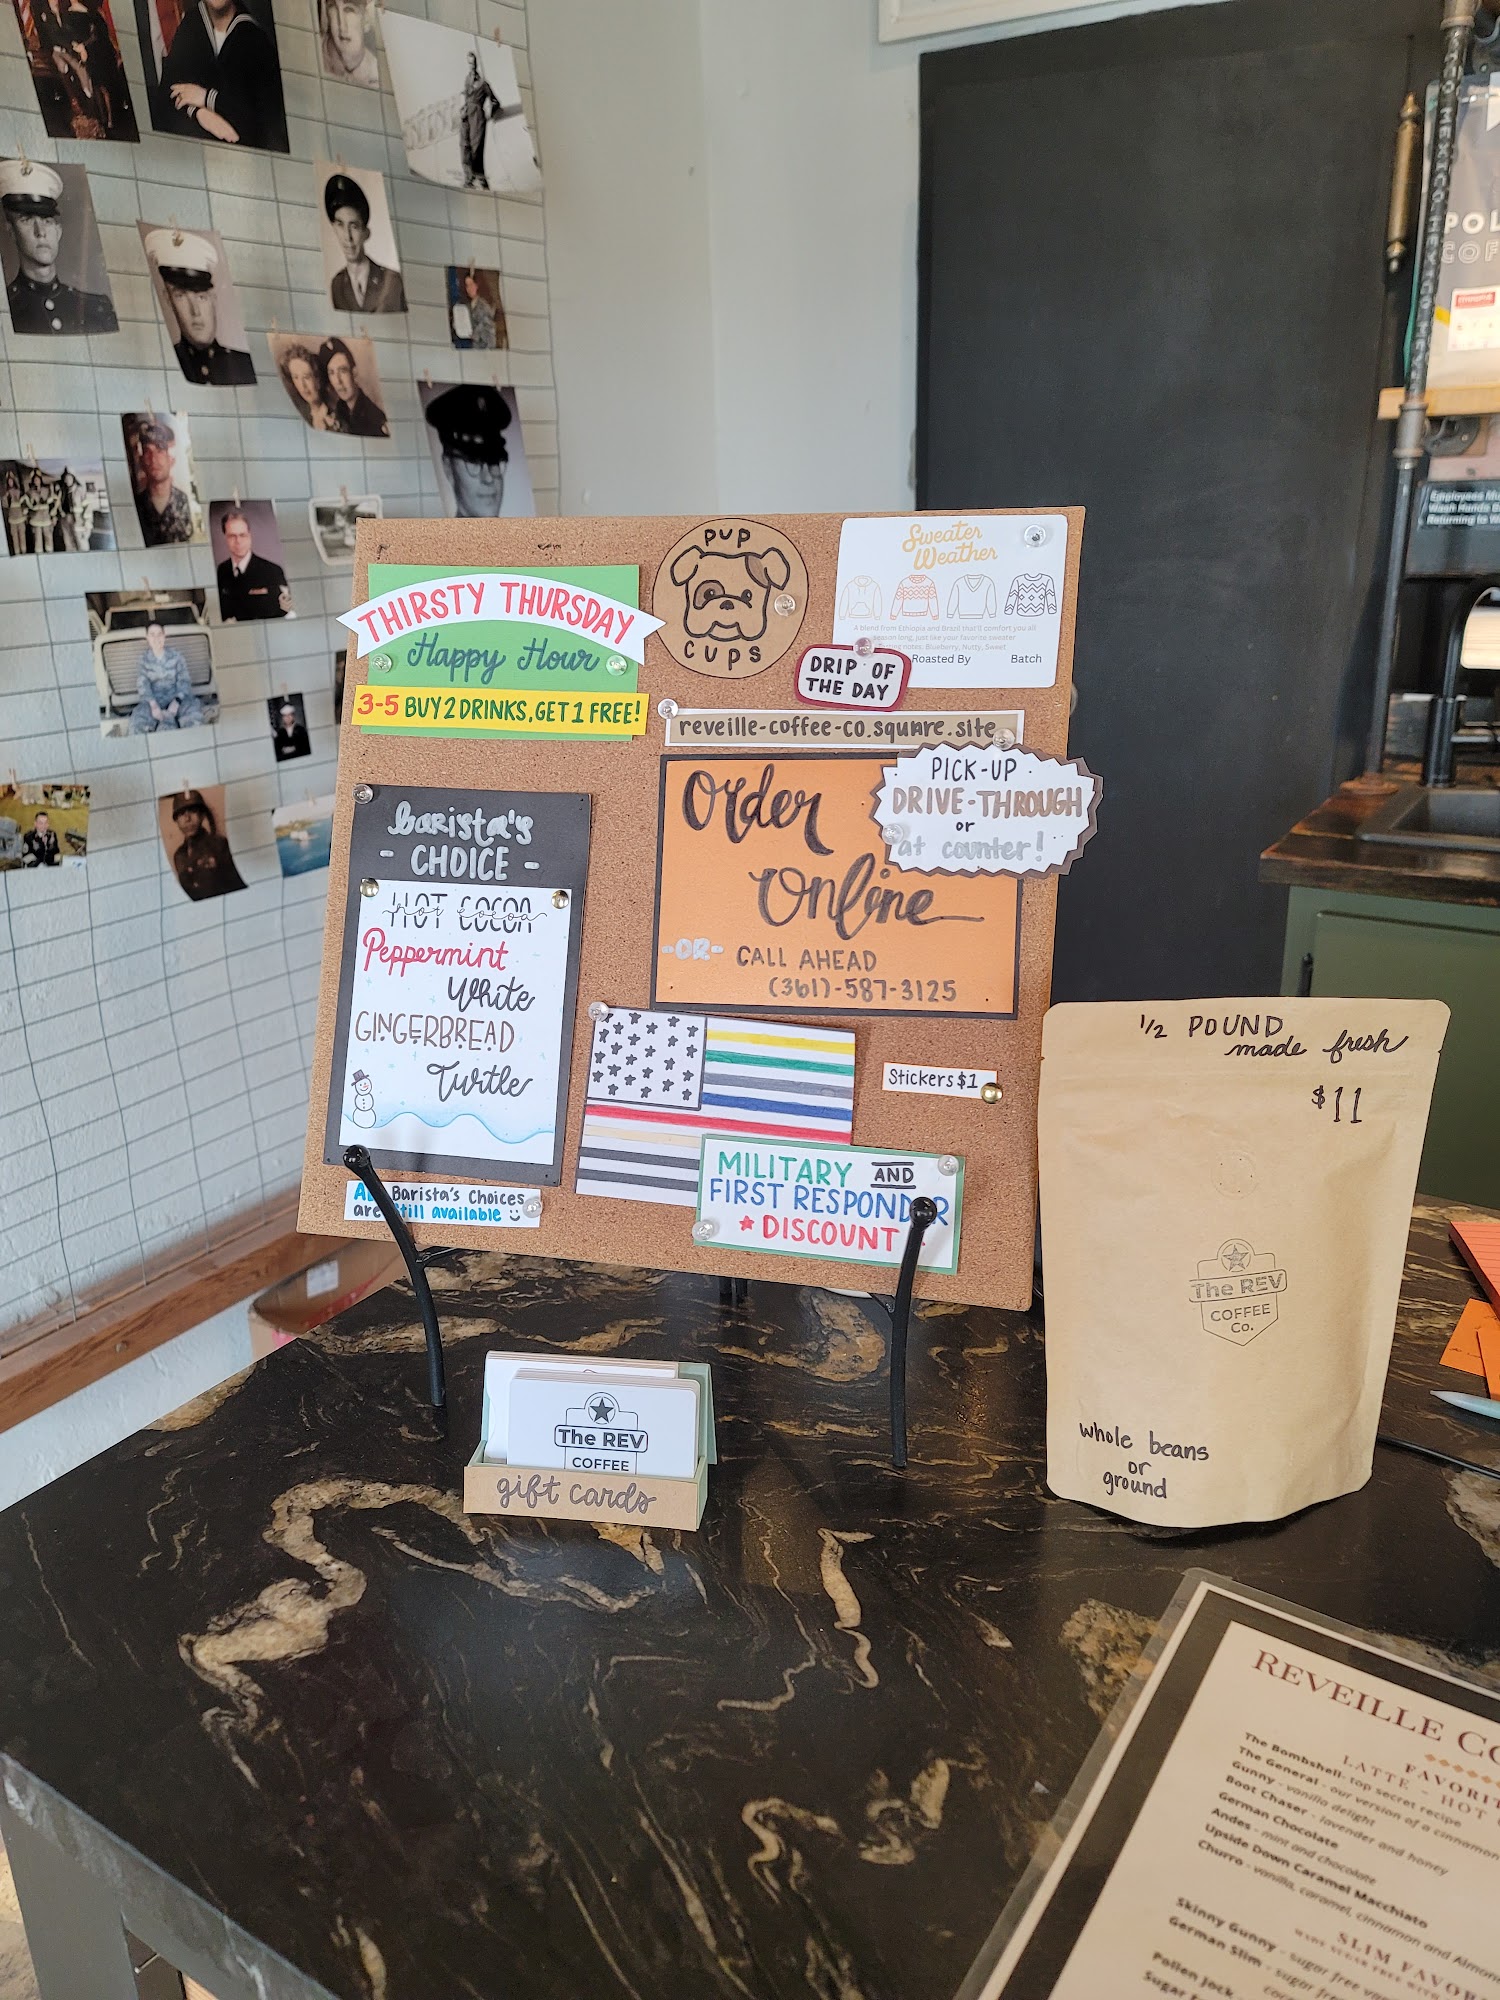 THIRSTY THURSDAY
Happy Hour
3-5 BUY 2 DRINKS, GET 1 FREE!
PUP
CUPS
Sweater
Weather
A blend from Ethiopia and Brazil that'll comfort you all
season long, just like your favorite sweater
notes: Blueberry, Nutty, Sweet
Roasted By Batch
DRIP OF
THE DAY
reveille-coffee-co.square.site
Order
Online
-OR- CALL AHEAD
(361)-587-3125
PICK-UP
DRIVE-THROUGH
or
at counter!
Barista's
- CHOICE -
HOT COCOA
hot cocoa
Peppermint
White
GINGERBREAD
Turtle
Barista's Choices
are still available
Stickers $1
MILITARY AND
FIRST RESPONDER
DISCOUNT
The REV
COFFEE
gift cards
1/2 POUND
made fresh
$11
The REV
COFFEE
Co.
whole beans
or
ground
Employees Mu
Wash Hands B
Returning to W
REVEILLE CO
FAVORIT
LATTE - HOT
The Bombshell- top secret recipe
The General - our version of a cinnamon
Gunny - vanilla delight
Boot Chaser - lavender and honey
German Chocolate
Andes - mint and chocolate
Upside Down Caramel Macchiato
Churro - vanilla, caramel, cinnamon and Almon
SLIM FAVO
Skinny Gunny - sugar free va
German Slim - sugar free
Pollen Jock -
Sugar